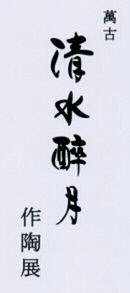 萬古
清水醉月
作陶展